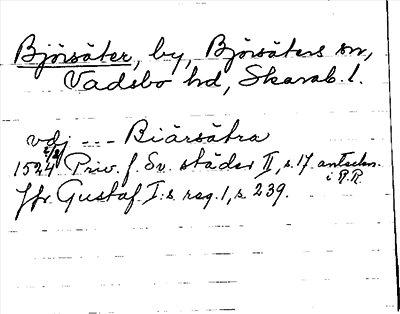 Björsäter, by, Björsäters sn,
Vadsbo hd, Skarab. l.
vdj --- Biärsätra
1524 2/8 Priv. f. Sv. städer II, s. 17. anteckn. i R.R.
Jfr. Gustaf I:s reg. 1, s. 239.